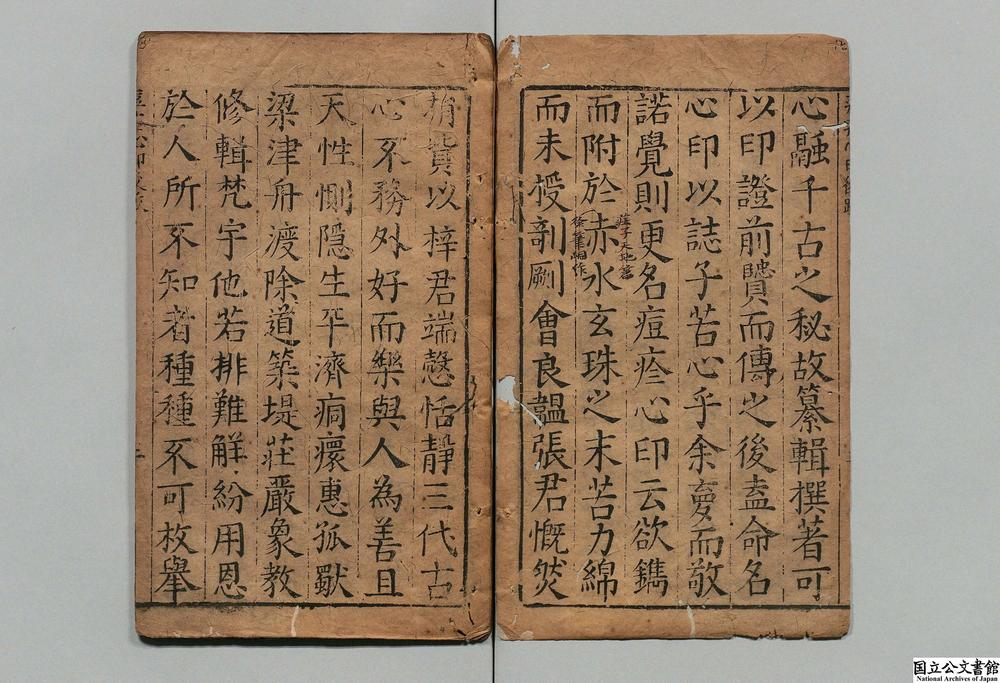 心融千古之秘故纂輯撰著可
以印證前賢而傳之後盍命名
心印以誌子苦心乎余憂而敬
諾覺則更名痘疹心印云欲鐫
而附於赤水玄珠之末苦力綿
莊子天地篇
徐筆峒作
而未授剞劂會良韞張君慨然
捐貲以梓君端慤恬静三代古
心不務外好而樂與人為善且
天性惻隱生平濟痌瘝惠孤獸
梁津舟渡除道築堤莊嚴象教
修輯梵宇他若排難解紛用恩
於人所不知者種種不可枚舉
国立公文書館
National Archives of Japan